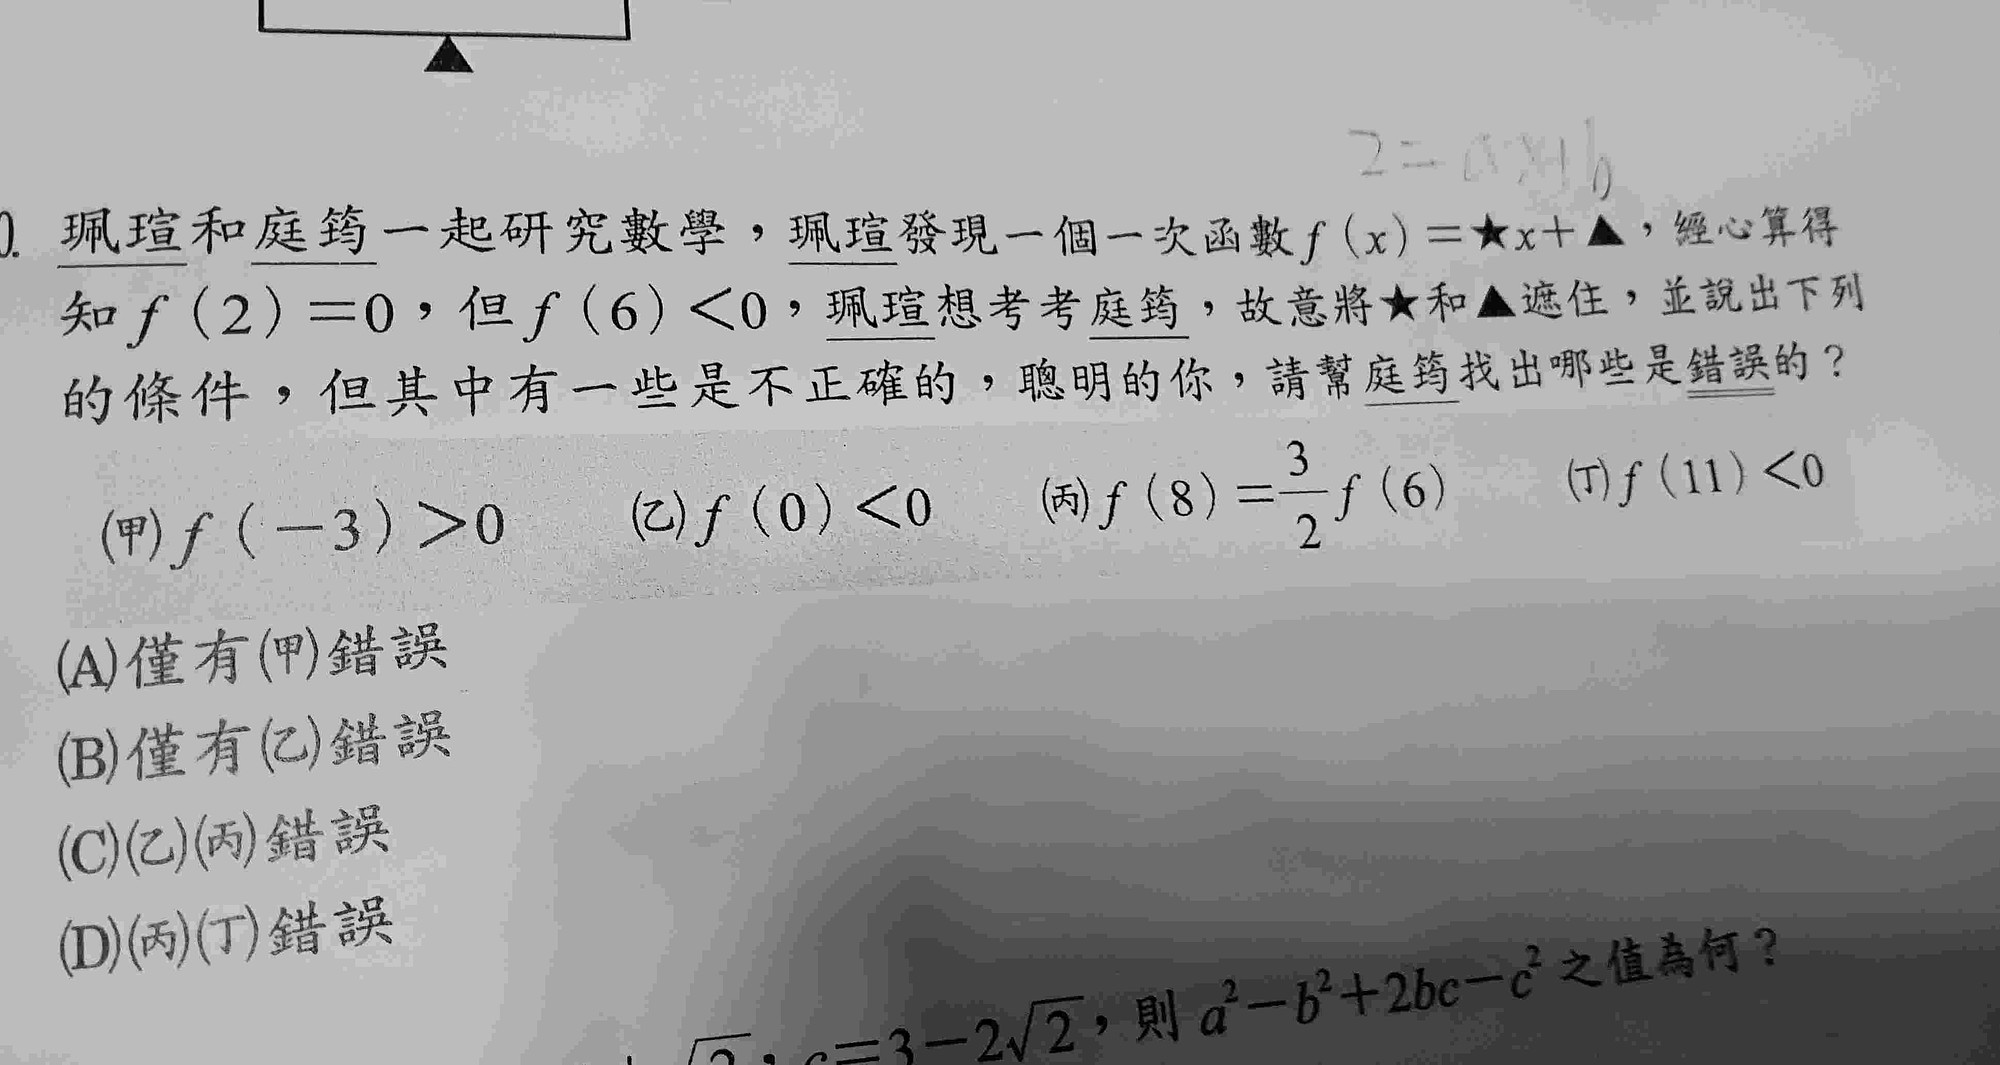 2=ax+b
0. 珮瑄和庭筠一起研究數學，珮瑄發現一個一次函數f(x)=★x+▲，經心算得
知f(2)=0，但f(6)<0，珮瑄想考考庭筠，故意將★和▲遮住，並說出下列
的條件，但其中有一些是不正確的，聰明的你，請幫庭筠找出哪些是錯誤的？
(甲)f(-3)>0 (乙)f(0)<0 (丙)f(8)=3/2f(6) (丁)f(11)<0
(A)僅有(甲)錯誤
(B)僅有(乙)錯誤
(C)(乙)(丙)錯誤
(D)(丙)(丁)錯誤
c=3-2√2，則a²-b²+2bc-c²之值為何？